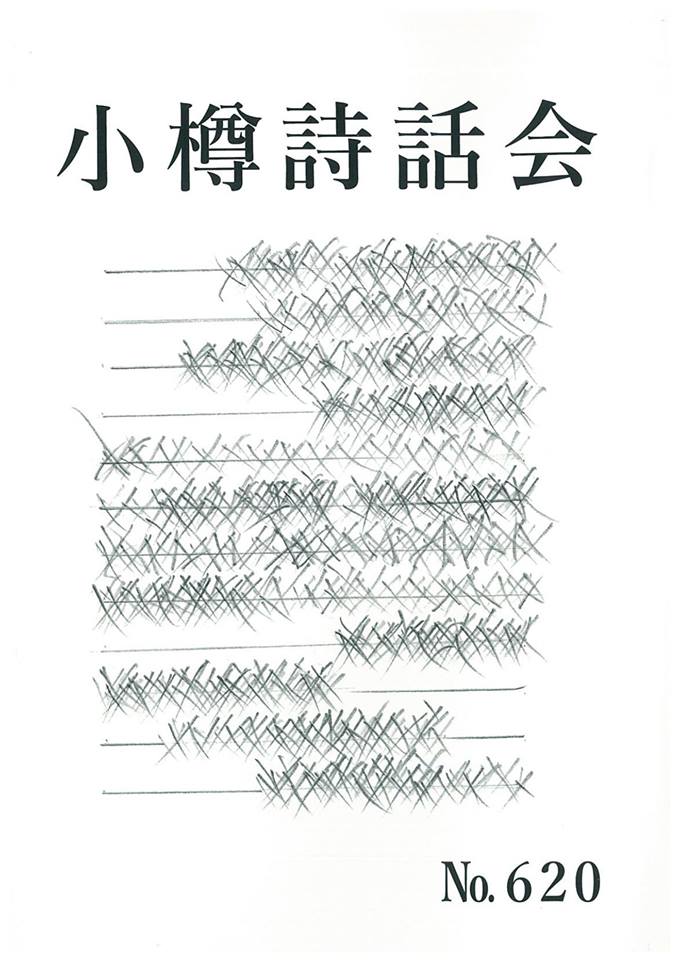 小樽詩話会
No. 620